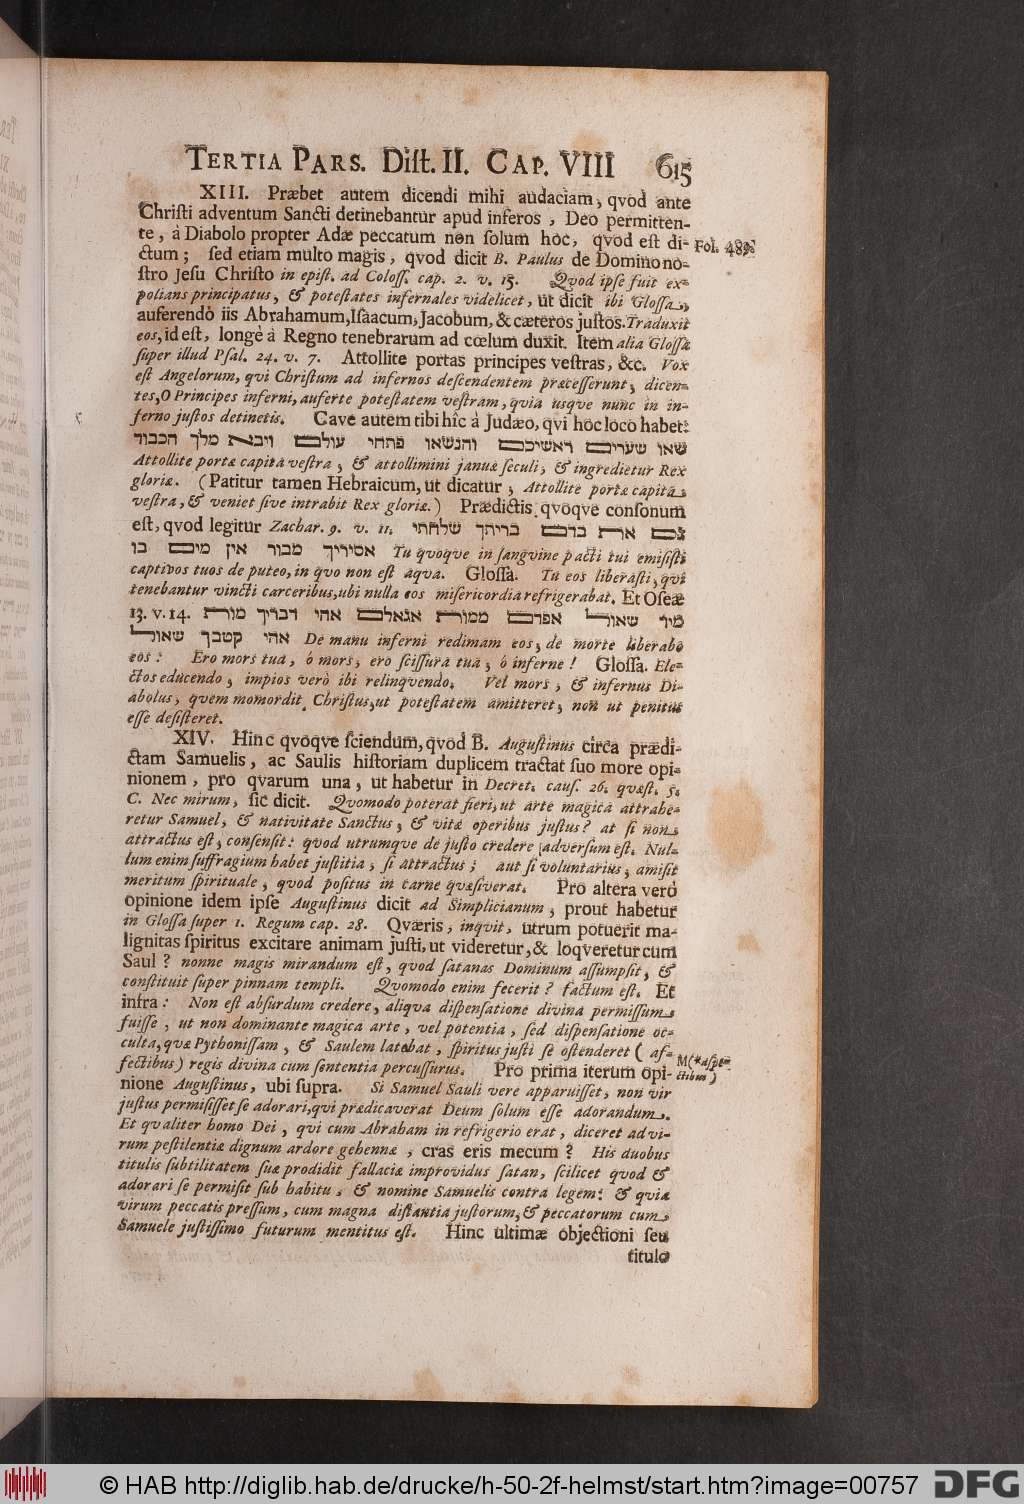 TERTIA PARS. Diſt. II. CAP. VIII 615
XIII. Præbet autem dicendi mihi audaciam, qvod ante
Chriſti adventum Sancti detinebantur apud inferos, Deo permitten-
te, à Diabolo propter Adæ peccatum non ſolum hoc, qvod eſt di-
ctum; ſed etiam multo magis, qvod dicit B. Paulus de Domino no-
Fol. 489.
ſtro Jeſu Chriſto in epiſt. ad Coloſſ. cap. 2. v. 15. Qvod ipſe fuit ex-
polians principatus, & poteſtates infernales videlicet, ut dicit ibi Gloſſa,
auferendò iis Abrahamum, Iſaacum, Jacobum, & cæteros juſtos. Traduxit
eos, id eſt, longè à Regno tenebrarum ad cœlum duxit. Item alia Gloſſa
ſuper illud Pſal. 24. v. 7. Attollite portas principes veſtras, &c. Vox
eſt Angelorum, qui Chriſtum ad infernos deſcendentem præceſſerunt, dicen-
tes, O Principes inferni, auferte poteſtatem veſtram, quia usque nunc in in-
ferno juſtos detinetis. Cave autem tibi hîc à Judæo, qvi hoc loco habet:
שאו שערים ראשיכם והנשאו פתחי עולם ויבא מלך הכבוד
Attollite portæ capita veſtra, & attollimini januæ ſeculi, & ingredietur Rex
gloriæ. (Patitur tamen Hebraicum, ut dicatur, Attollite portæ capita
veſtra, & veniet ſive intrabit Rex gloriæ.) Prædictis qvoqve conſonum
eſt, qvod legitur Zachar. 9. v. 11. גם את בדם בריתך שלחתי
אסיריך מבור אין מים בו Tu qvoqve in ſangvine pacti tui emiſiſti
captivos tuos de puteo, in qvo non eſt aqva. Gloſſa. Tu eos liberaſti, qvi
tenebantur vincti carceribus, ubi nulla eos miſericordia refrigerabat. Et Oſeæ
13. v. 14. מיד שאול אפדם ממות אגאלם אהי דבריך מות
אהי קטבך שאול De manu inferni redimam eos, de morte liberabo
eos: Ero mors tua, ô mors, ero ſciſſura tua, ô inferne! Gloſſa. Ele-
ctos educendo, impios verò ibi relinqvendo. Vel mors, & infernus Di-
abolus, qvem momordit Chriſtus, ut poteſtatem amitteret, non ut penitus
eſſe deſiſteret.
XIV. Hinc qvoqve ſciendum, qvod B. Auguſtinus circa prædi-
ctam Samuelis, ac Saulis hiſtoriam duplicem tractat ſuo more opi-
nionem, pro qvarum una, ut habetur in Decret. cauſ. 26. quæſt. 5.
C. Nec mirum, ſic dicit. Qvomodo poterat fieri, ut arte magica attrahe-
retur Samuel, & nativitate Sanctus, & vitæ operibus juſtus? at ſi non
attractus eſt, conſenſit: quod utrumque de juſto credere adverſum eſt. Nul-
lum enim ſuffragium habet juſtitia, ſi attractus; aut ſi voluntarius, amiſit
meritum ſpirituale, quod poſitus in carne qvæſiverat. Pro altera verò
opinione idem ipſe Auguſtinus dicit ad Simplicianum, prout habetur
in Gloſſa ſuper 1. Regum cap. 28. Qværis, inqvit, utrum potuerit ma-
lignitas ſpiritus excitare animam juſti, ut videretur, & loqveretur cum
Saul? nonne magis mirandum eſt, quod ſatanas Dominum aſſumpſit, &
conſtituit ſuper pinnam templi. Qvomodo enim fecerit? factum eſt. Et
infra: Non eſt abſurdum credere, aliqva diſpenſatione divina permiſſum
fuiſſe, ut non dominante magica arte, vel potentia, ſed diſpenſatione oc-
culta, quæ Pythoniſſam, & Saulem latebat, ſpiritus juſti ſe oſtenderet (af-
fectibus) regis divina cum ſententia percuſſurus. Pro prima iterum opi-
M(*aſpe-
ctibus)
nione Auguſtinus, ubi ſupra. Si Samuel Sauli vere apparuiſſet, non vir
juſtus permiſiſſet ſe adorari, qvi prædicaverat Deum ſolum eſſe adorandum.
Et qvaliter homo Dei, qvi cum Abraham in refrigerio erat, diceret ad vi-
rum peſtilentiæ dignum ardore gehennæ, cras eris mecum? His duobus
titulis ſubtilitatem ſuæ prodidit fallaciæ improvidus ſatan, ſcilicet qvod &
adorari ſe permiſit ſub habitu, & nomine Samuelis contra legem: & qvia
virum peccatis preſſum, cum magna diſtantia juſtorum, & peccatorum cum
Samuele juſtiſſimo futurum mentitus eſt. Hinc ultimæ objectioni ſeu
titulo
© HAB http://diglib.hab.de/drucke/h-50-2f-helmst/start.htm?image=00757
DFG